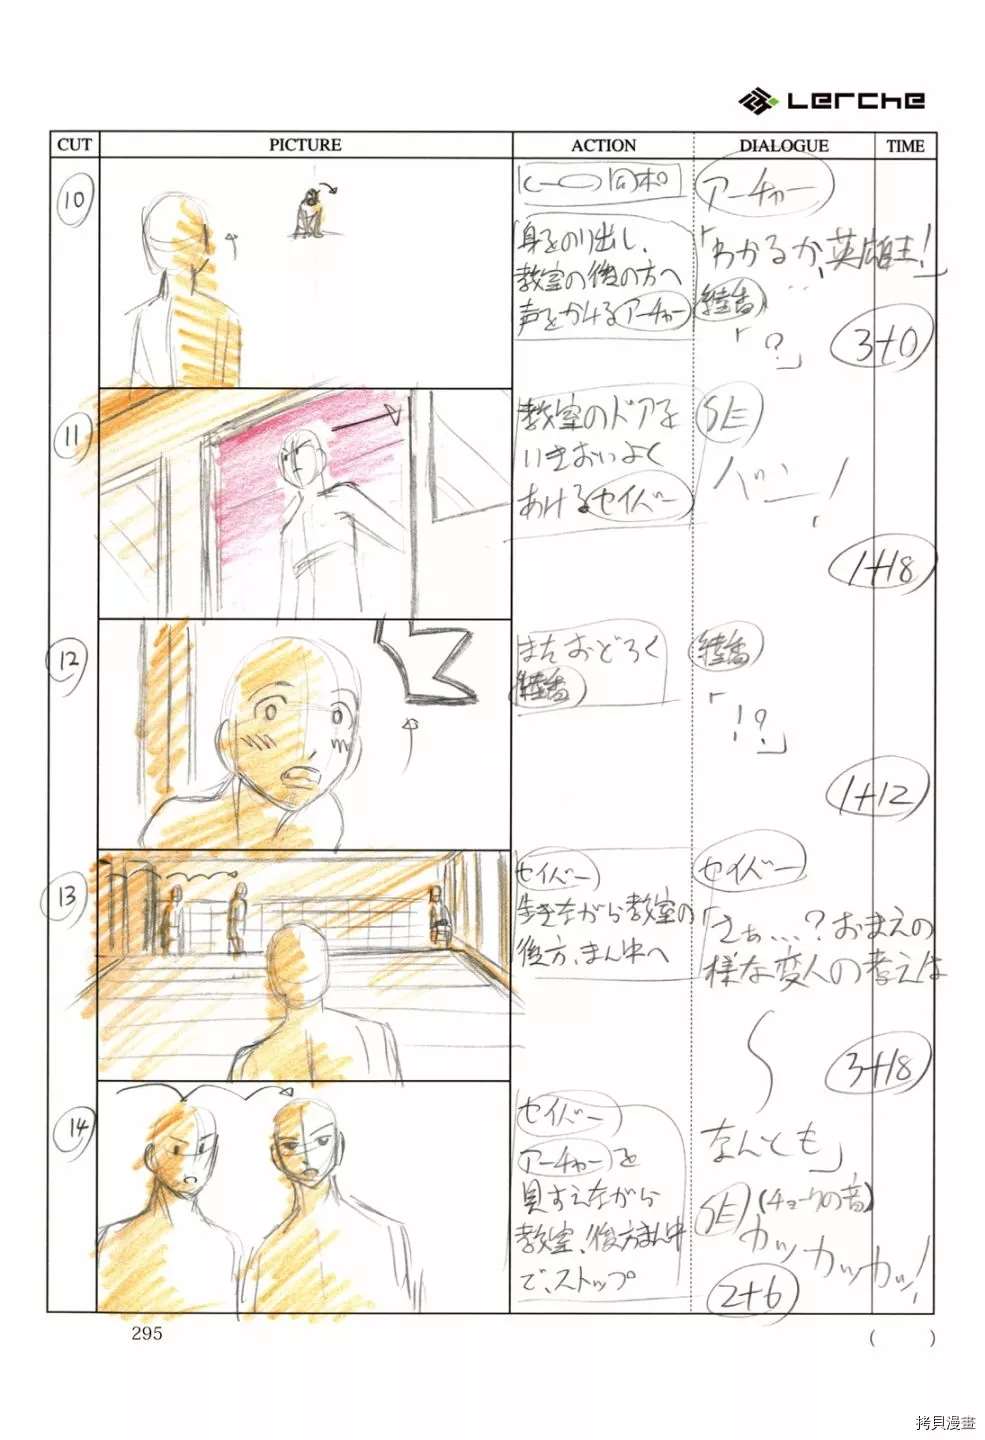 Lerche
CUT PICTURE ACTION DIALOGUE TIME
10
同ポ
身をのり出し、
教室の後の方へ
声をかけるアーチャー
アーチャー
「わかるか、英雄王!」
綾香
「?」
3+0
11
教室のドアを
いきおいよく
あけるセイバー
SE
バン!
1+18
12
またおどろく
綾香
綾香
「!?」
1+12
13
セイバー
歩きながら教室の
後方、まん中へ
セイバー
「さぁ…?おまえの
様な変人の考えは
3+18
14
セイバー
アーチャーを
見すえながら
教室、後方まん中
で、ストップ
なんとも」
SE(チョークの音)
カッカッカッ!
2+6
295
( )
拷貝漫畫